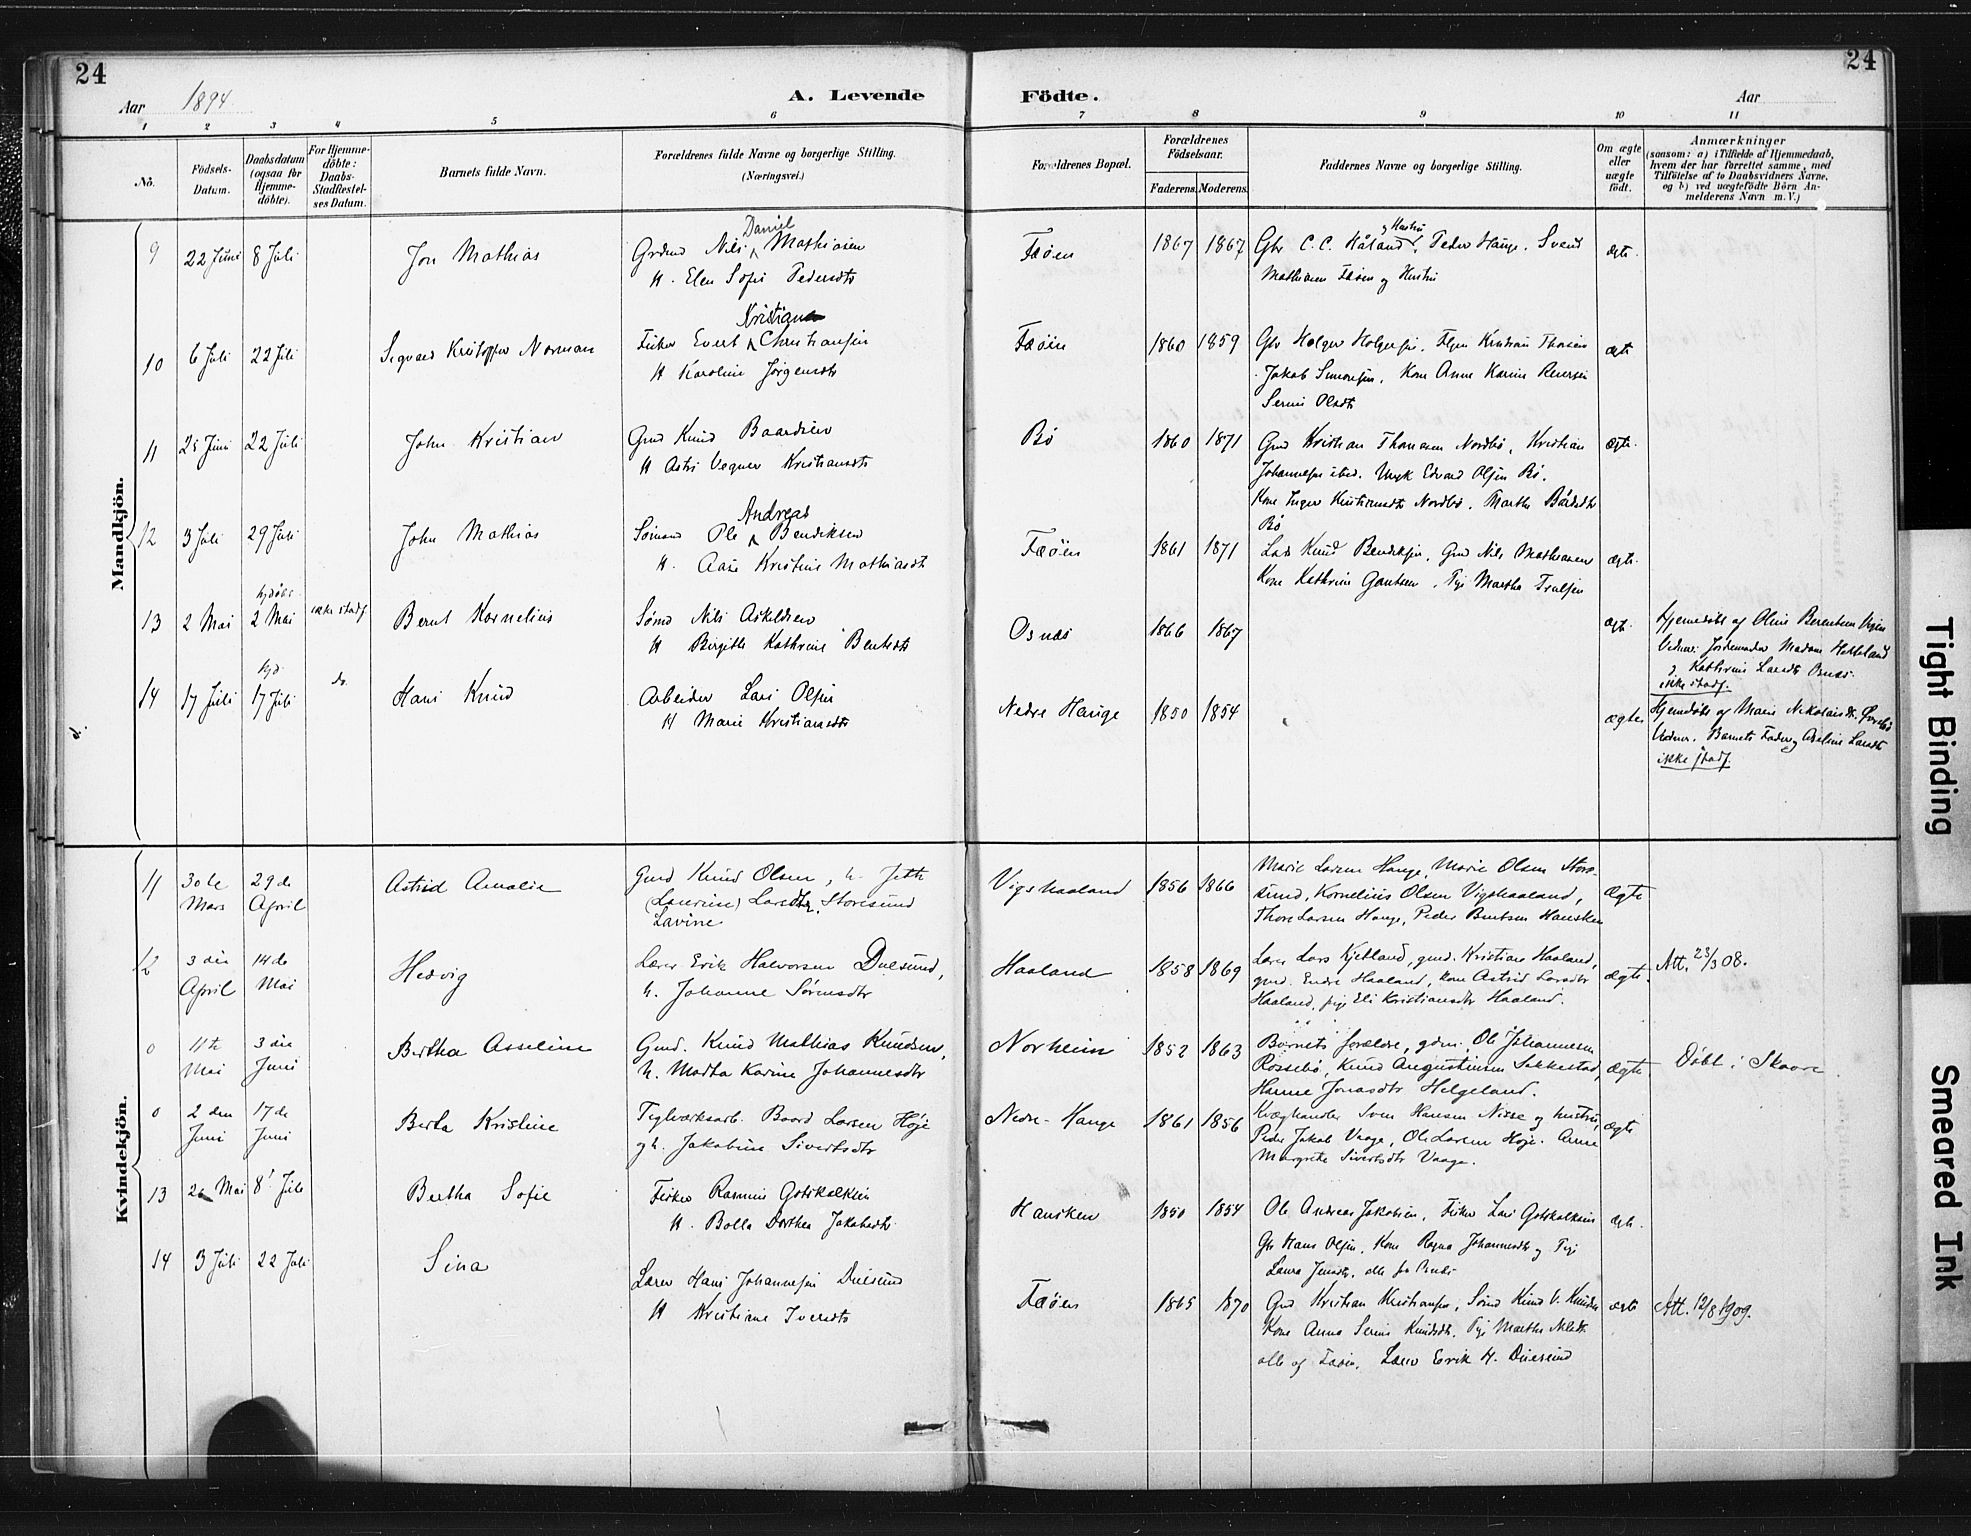 24
24
Aar 1894.
A. Levende
Födte.
Aar
1 2 3 4 5 6 7 8 9 10 11
No.
Födsels-Datum.
Daabsdatum (ogsaa for Hjemme-döbte).
For Hjemme-döbte: Daabs-Stadfæstel-ses Datum.
Barnets fulde Navn.
Forældrenes fulde Navne og borgerlige Stilling.
(Næringsvei.)
Forældrenes Bopæl.
Forældrenes Födselsaar.
Faderens. Moderens.
Faddernes Navne og borgerlige Stilling.
Om ægte eller uægte födt.
Anmærkninger
(saasom: a) i Tilfælde af Hjemmedaab,
hvem der har forrettet samme, med
Tilföielse af to Daabsvidners Navne,
og b) ved uægtefödte Börn An-
melderens Navn m. V.)
Mandkjön.
Daniel
9 22 Juni 8 Juli Jon Mathias Grdmd Nils Mathiasen Fæöen 1867 1867 Gbr C. C. Håland og Hustru, Peder Hauge. Svend ægte.
H. Elen Sofie Pedersdtr
Mathiasen Fæöen og Hustru
Kristian
10 6 Juli 22 Juli Sigvard Kristoffer Norman Fisker Evert Christiansen Fæöen 1860 1859 Gbr Holger Holgersen, Kristian ægte
H Karoline Jörgensdtr
Jakob Simonsen, Kone Anne Karine
Serine Olsdtr
11 25 Juni 22 Juli John Kristian Gmd Knud Baardsen Bö 1860 1871 Gmd Kristian Thomasen Nordbö, Kristian ægte.
H Astri Kristiansdtr
Johannesen ibid. Ungk Edvard Olsen Bö.
Kone Inger Kristiansdtr Nordbö. Marthe Bårdsdtr
Bö
Andreas
12 3 Juli 29 Juli John Mathias Sömand Ole Bendiksen Fæöen 1861 1871 Knud Bendiksen, Gmd Nils Mathiasen ægte.
H. Kristine Mathiasdt
Kone Kathrine Gautsen, Pige Martha
hjdöbt
13 2 Mai 2 Mai ikke stadf. Bernt Kornelius Sömd Nils Askildsen Osnæs 1866 1867 ægte.
H Birgitte Kathrine Bentsdtr
Hjemmedöbt af Oline Berentsen
Vidner: Jordemoder Madam
og Kathrine Larsdtr Osnæs.
ikke stadf.
hjd
14 17 Juli 17 Juli do. Hans Knud Arbeider Lars Olsen Nedre Hauge 1850 1854 ægte
H Marie Kristiansdtr
Hjemmedöbt af Marie Nikolaisdt.
Vidner. Barnets Fader og Larsdtr
ikke stadf.
Kvindekjön.
11 30te Mars 29de April Astrid Amalie Gmd Knud Olsen, h. Jette Vigshaaland 1856 1866 Marie Larsen Hauge, Marie Olsen Store- ægte
(Laurine) Larsdtr. Storesund
Lavine
sund, Kornelius Olsen Vigshaaland,
Thore Larsen Hauge, Peder Bentsen Hansken
12 3die April 14de Mai Hedvig Lærer Erik Halvorsen Duesund, Haaland 1858 1869 Lærer Lars Kjetland, gmd. Kristian Haaland, ægte. Att. 23/3 08.
h. Johanne Sörensdtr
gmd. Endre Haaland, kone Astrid Larsdtr
Haaland, pige Eli Kristiansdtr Haaland.
0 11te Mai 3die Juni Bertha Asseline Gmd. Knud Mathias Knudsen, Norheim 1852 1863 Barnets forældre, gdm. Ole Johannesen ægte Döbt i Skaare.
h. Marta Karine Johannesdtr
Rossebö, Knud Augustinsen Sakkestad,
Hanne Jonasdtr Helgeland.
0 2den Juni 17de Juni Berta Kristine Teglværksarb. Baard Larsen Höje Nedre-Hauge 1861 1856 Kræghandler Sven Hansen Nisse og hustru, ægte
g h. Jakobine Sivertsdtr
Peder Jakob Vaage, Ole Larsen Höje. Anne
Margrethe Sivertsdtr Vaage.
13 26 Mai 8 Juli Bertha Sofie Fisker Rasmus Gotskalksen Hansken 1850 1854 Ole Andreas Jakobsen, Fisker Lars Gotskalksen ægte.
H. Bolla Dorthea Jakobsdtr
Gbr Hans Olsen, Kone Ragna Johannesdtr og Pige
Laura Jensdtr, alle fra
14 3 Juli 22 Juli Sina Lærer Hans Johannesen Duesund Fæöen 1865 1870 Gmd Kristian Kristiansen, Sömd Knud V. Knudsen ægte Att. 12/8 1909.
H Kristiane Iversdtr
Kone Anna Serine Knudsdtr, Pige Marthe
alle af Fæöen, Lærer Eerik H. Duesund
Tight Binding
Smeared Ink